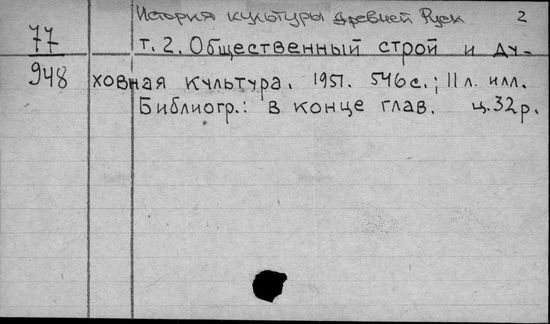 История культуры древней Руси 2
77 т. 2. Общественный строй и ду-
948 ховная культура. 1951. 546 с.; 11 л. илл.
Библиогр.: в конце глав. ц. 32 р.